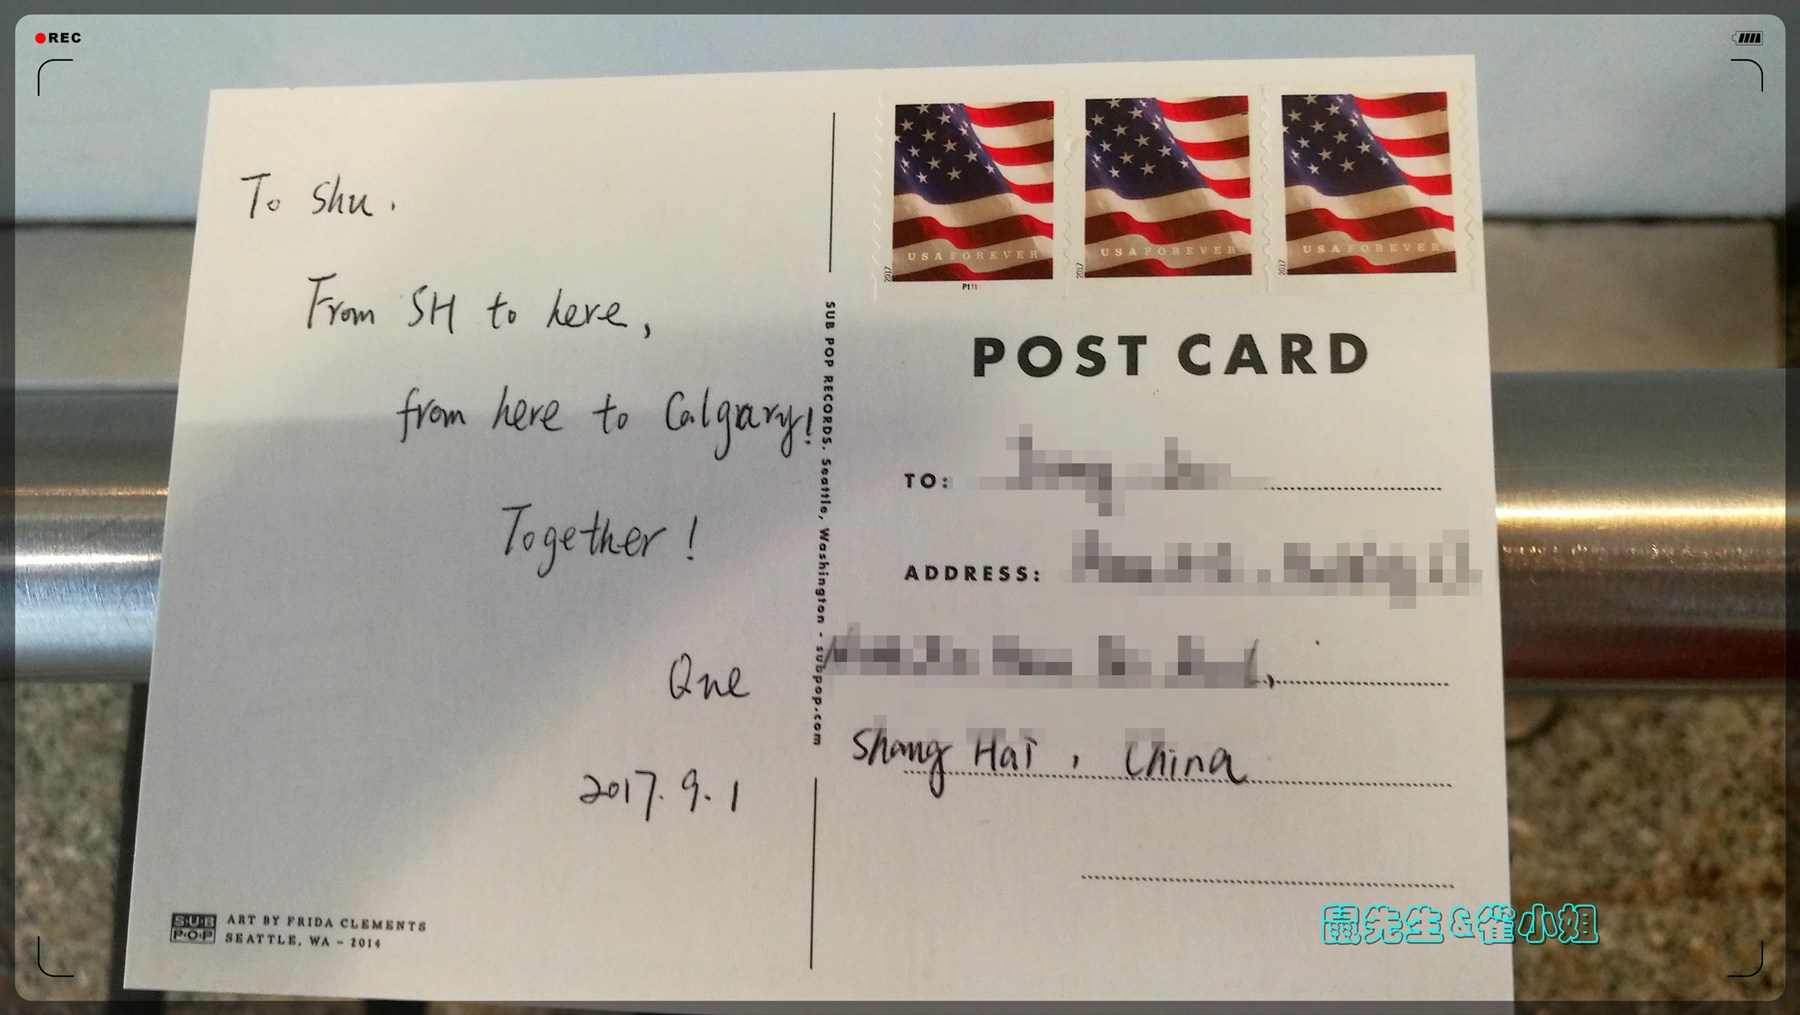 REC
To Shu.
From SH to here,
from here to Calgary!
Together!
Que
2017.9.1
SUB POP
ART BY FRIDA CLEMENTS
SEATTLE, WA - 2014
SUB POP RECORDS. Seattle, Washington - subpop.com
USA FOREVER
2017
P111
USA FOREVER
2017
USA FOREVER
2017
POST CARD
TO:
ADDRESS:
Shang Hai, China
鼠先生&雀小姐